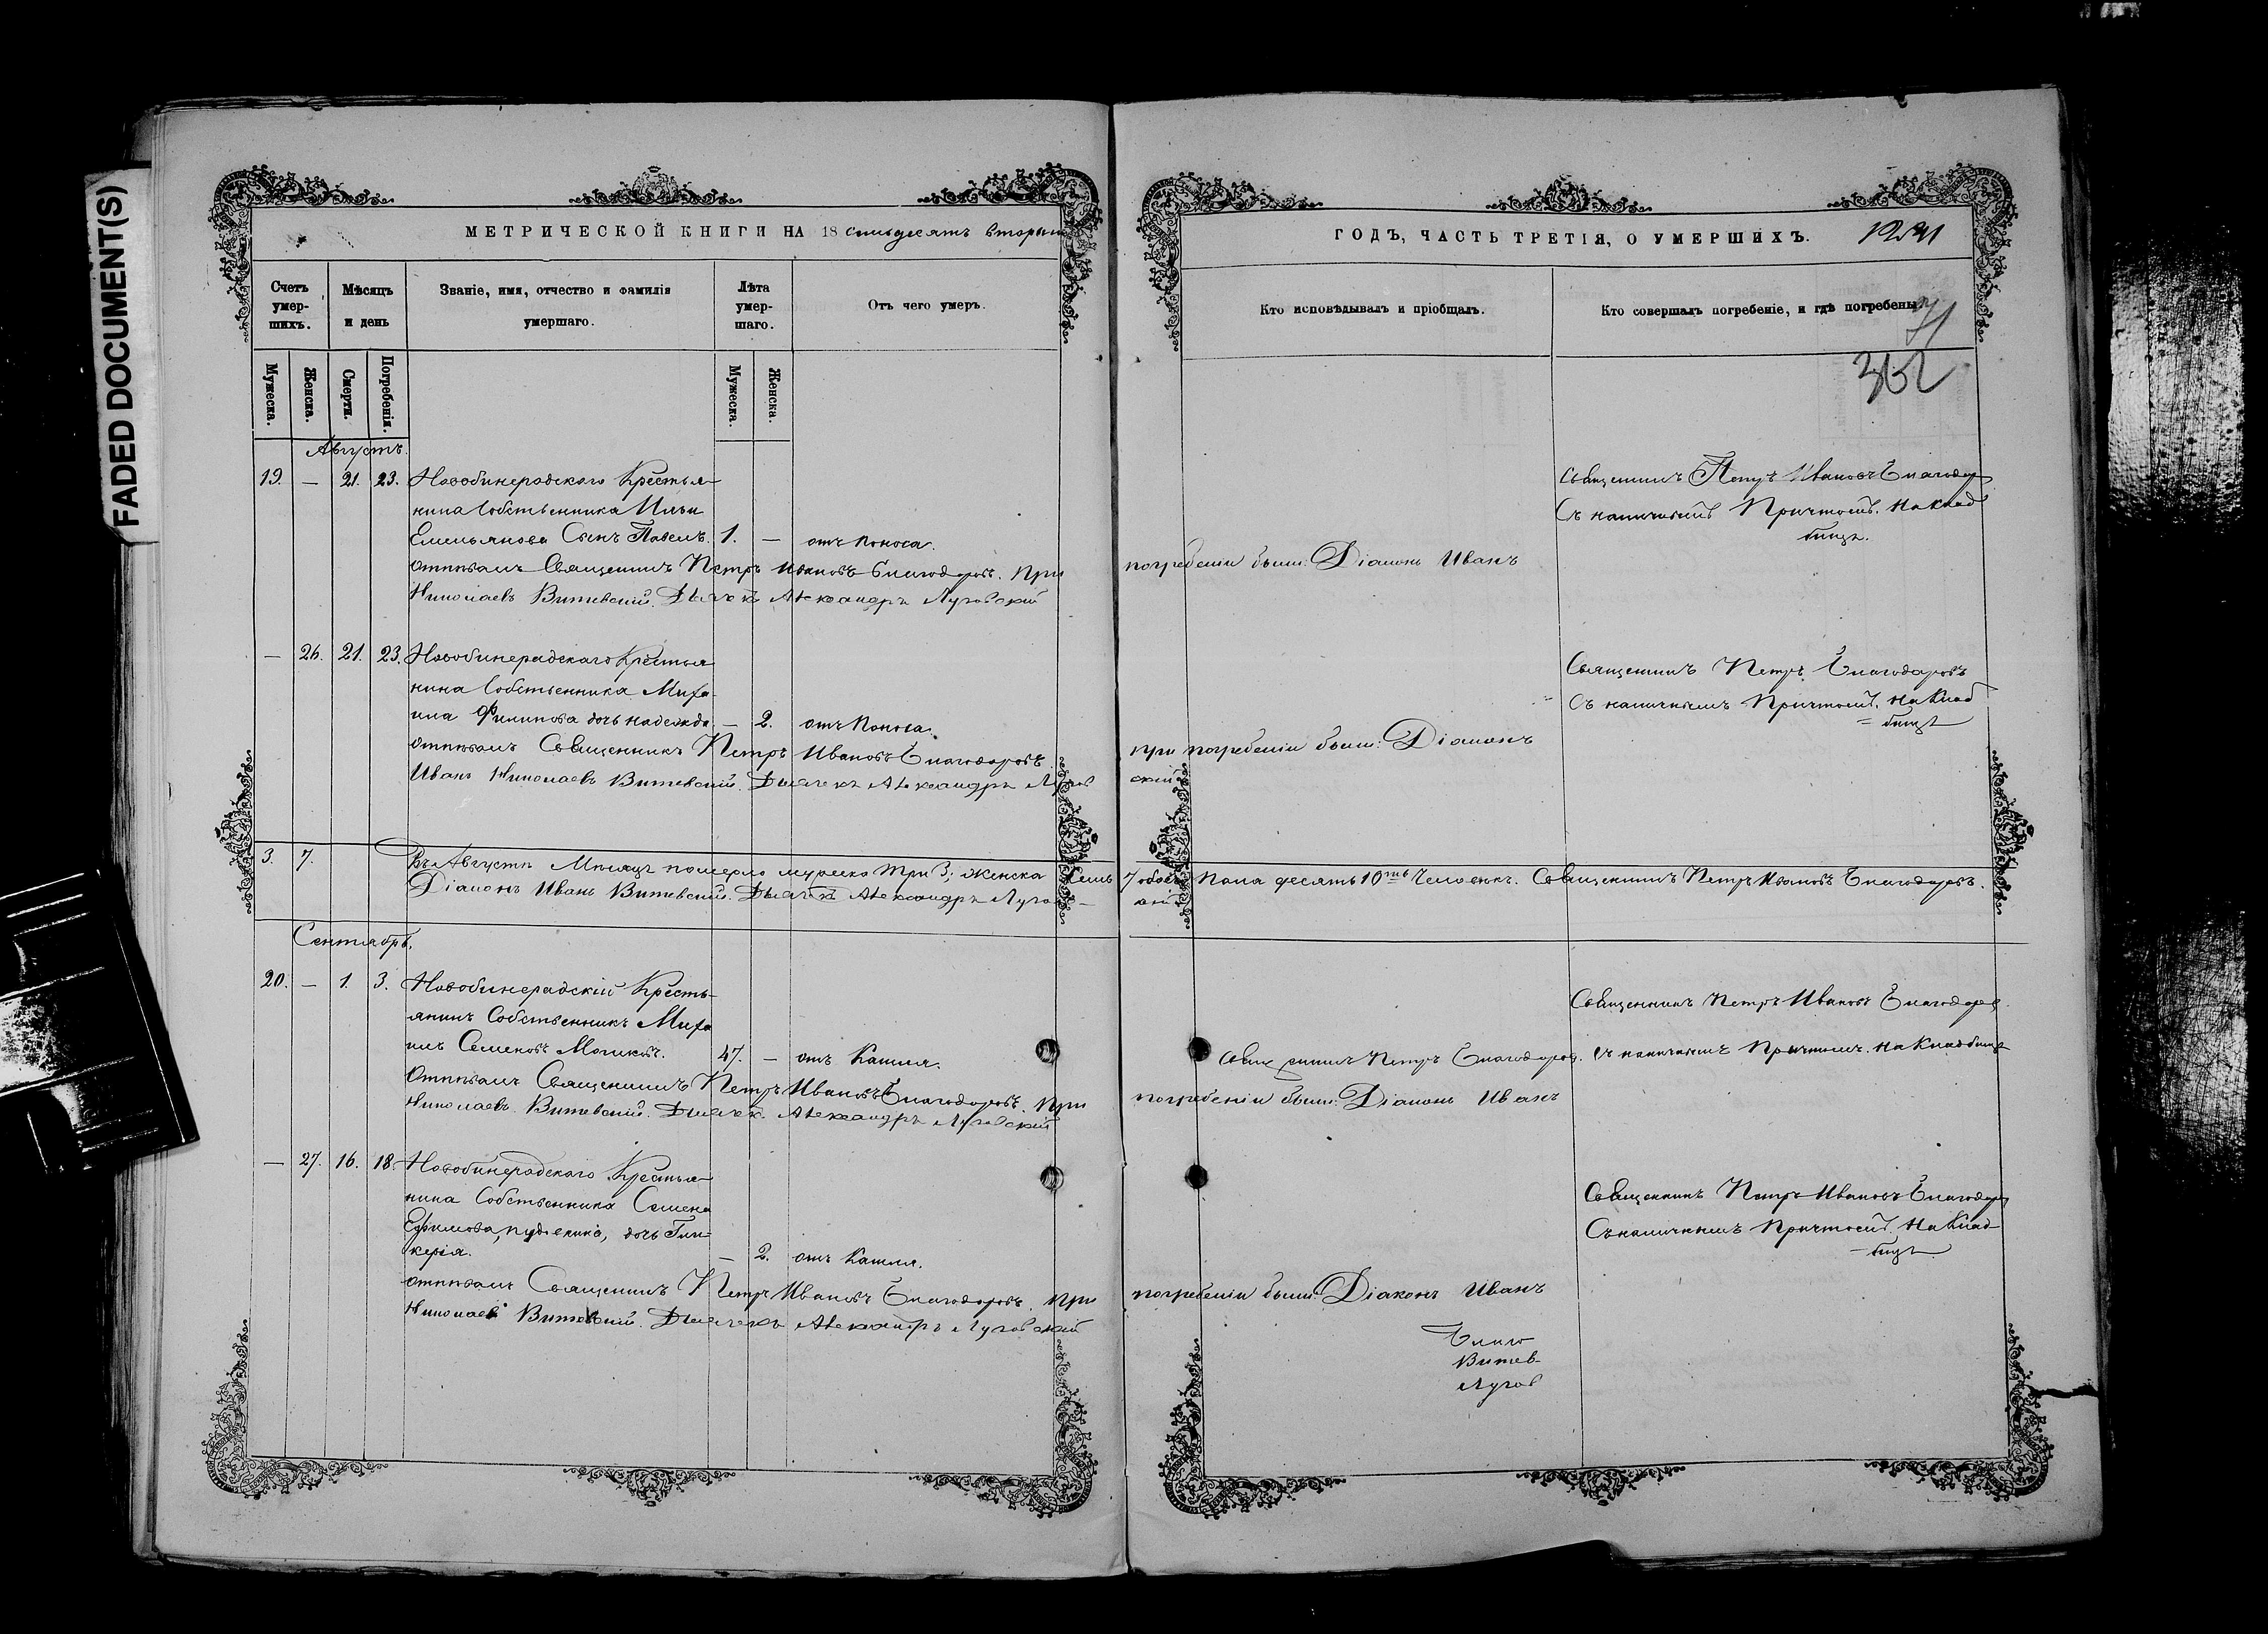 FADED DOCUMENT(S)
МЕТРИЧЕСКОЙ КНИГИ НА 18 семьдесятъ вторый
Счетъ умер-шихъ.
Мѣсяцъ и день
Званіе, имя, отчество и фамилія умершаго.
Лѣта умер-шаго.
Отъ чего умеръ.
Мужеска.
Женска.
Смерти.
Погребенія.
Мужеска.
Женска.
Августъ.
19. — 21. 23. Новобинерадскаго Крестья-
нина Собственника Ильи
Емельянова Сынъ Павелъ. 1. — отъ поноса.
Отпѣвалъ Священникъ Петръ Ивановъ Благодаровъ. При
Николаевъ Витевскій. Дьячекъ Александръ Луговской
— 26. 21. 23. Новобинерадскаго Крестья
нина Собственника Миха-
ила Филипова дочь Надежда. — 2. отъ поноса.
Отпѣвалъ Священникъ Петръ Ивановъ Благодаровъ.
Иванъ Николаевъ Витевскій. Дьячекъ Александръ Лугов
3. 7. Въ Августѣ Мѣсяцѣ померло мужеска три 3; женска семь
Діаконъ Иванъ Витевскій. Дьячекъ Александръ Лугов-
Сентябрь.
20. — 1. 3. Новобинерадскій Кресть-
янинъ Собственникъ Миха
илъ Семеновъ 47. — отъ Кашля.
Отпѣвалъ Священникъ Петръ Ивановъ Благодаровъ. При
Николаевъ Витевскій. Дьячекъ Александръ Луговской
— 27. 16. 18. Новобинерадскаго Крестья-
нина Собственника Семена
Ефимова, дочь Гли-
керія. — 2. отъ Кашля.
Отпѣвалъ Священникъ Петръ Ивановъ Благодаровъ. При
Николаевъ Витевскій. Дьячекъ Александръ Луговской
ГОДЪ, ЧАСТЬ ТРЕТІЯ, О УМЕРШИХЪ.
Кто исповѣдывалъ и пріобщалъ.
Кто совершалъ погребеніе, и гдѣ погребены.
71
362
Священникъ Петръ Ивановъ Благодар
Съ наличнымъ Причтомъ. На Клад
бищѣ.
погребеніи были: Діаконъ Иванъ
Священникъ Петръ Благодаровъ
Съ наличнымъ Причтомъ. На Клад
бищѣ
при погребеніи были: Діаконъ
скій
7 обоего Пола десять 10ть Человекъ. Священникъ Петръ Ивановъ Благодаровъ.
скій
Священникъ Петръ Ивановъ Благодаров
Священникъ Петръ Благодаров. Съ наличнымъ Причтомъ. На Кладбищѣ
погребеніи были: Діаконъ Иванъ
Священникъ Петръ Ивановъ Благодар
Съ наличнымъ Причтомъ, На Клад-
бищѣ
погребеніи были: Діаконъ Иванъ
Благо
Витев-
Лугов